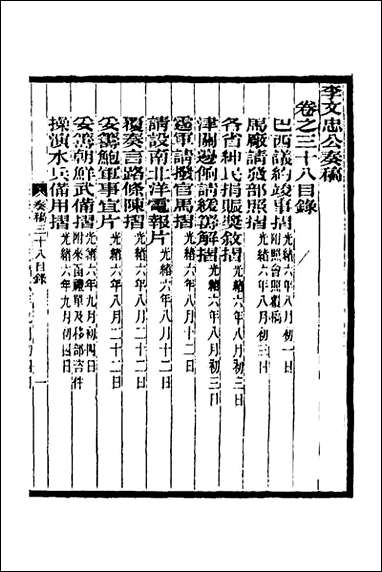 李文忠公奏稿
卷之三十八目錄
巴西議約竣事摺 附照會照覆稿 光緒六年八月初一日
馬廠請發部照摺 光緒六年八月初三日
各省紳民捐賑獎敘摺 光緒六年八月初三日
津關邊餉請緩籌解摺 光緒六年八月初三日
選軍請撥官馬摺 光緒六年八月十二日
請設南北洋電報片 光緒六年八月十二日
覆奏言路條陳摺 光緒六年八月二十二日
妥籌鮑軍事宜片 光緒六年八月二十二日
妥籌朝鮮武備摺 附來函禮單及移部咨件 光緒六年九月初四日
操演水兵備用摺 光緒六年九月初四日
奏稿三十八目錄
一